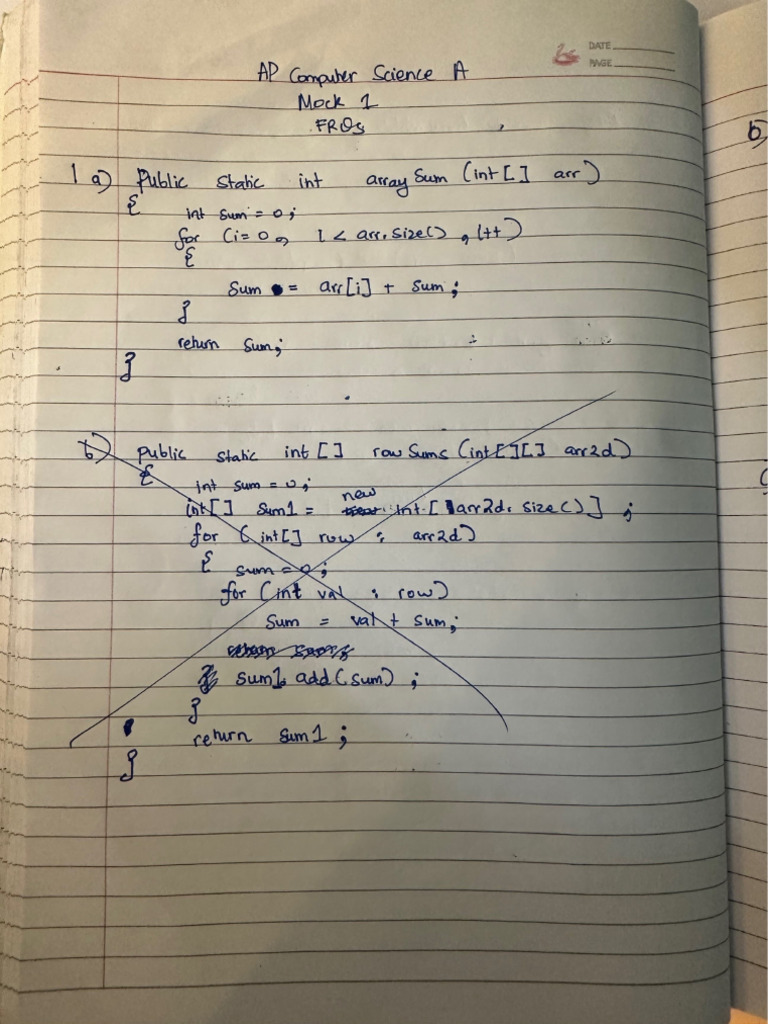 DATE
PAGE
AP Computer Science A
Mock 1
FRQs
1 a) Public static int array Sum (int [] arr)
{
int sum = 0;
for (i=0, i < arr.size(), i++)
{
Sum = arr[i] + sum;
}
return sum;
}
b) public static int [] row Sums (int[][] arr2d)
{
int sum = 0;
int[] sum1 = new int [arr2d. size()];
for (int[] row : arr2d)
{ sum = 0;
for (int val : row)
Sum = val + sum;
sum1. add (sum);
}
return sum1;
}
b)